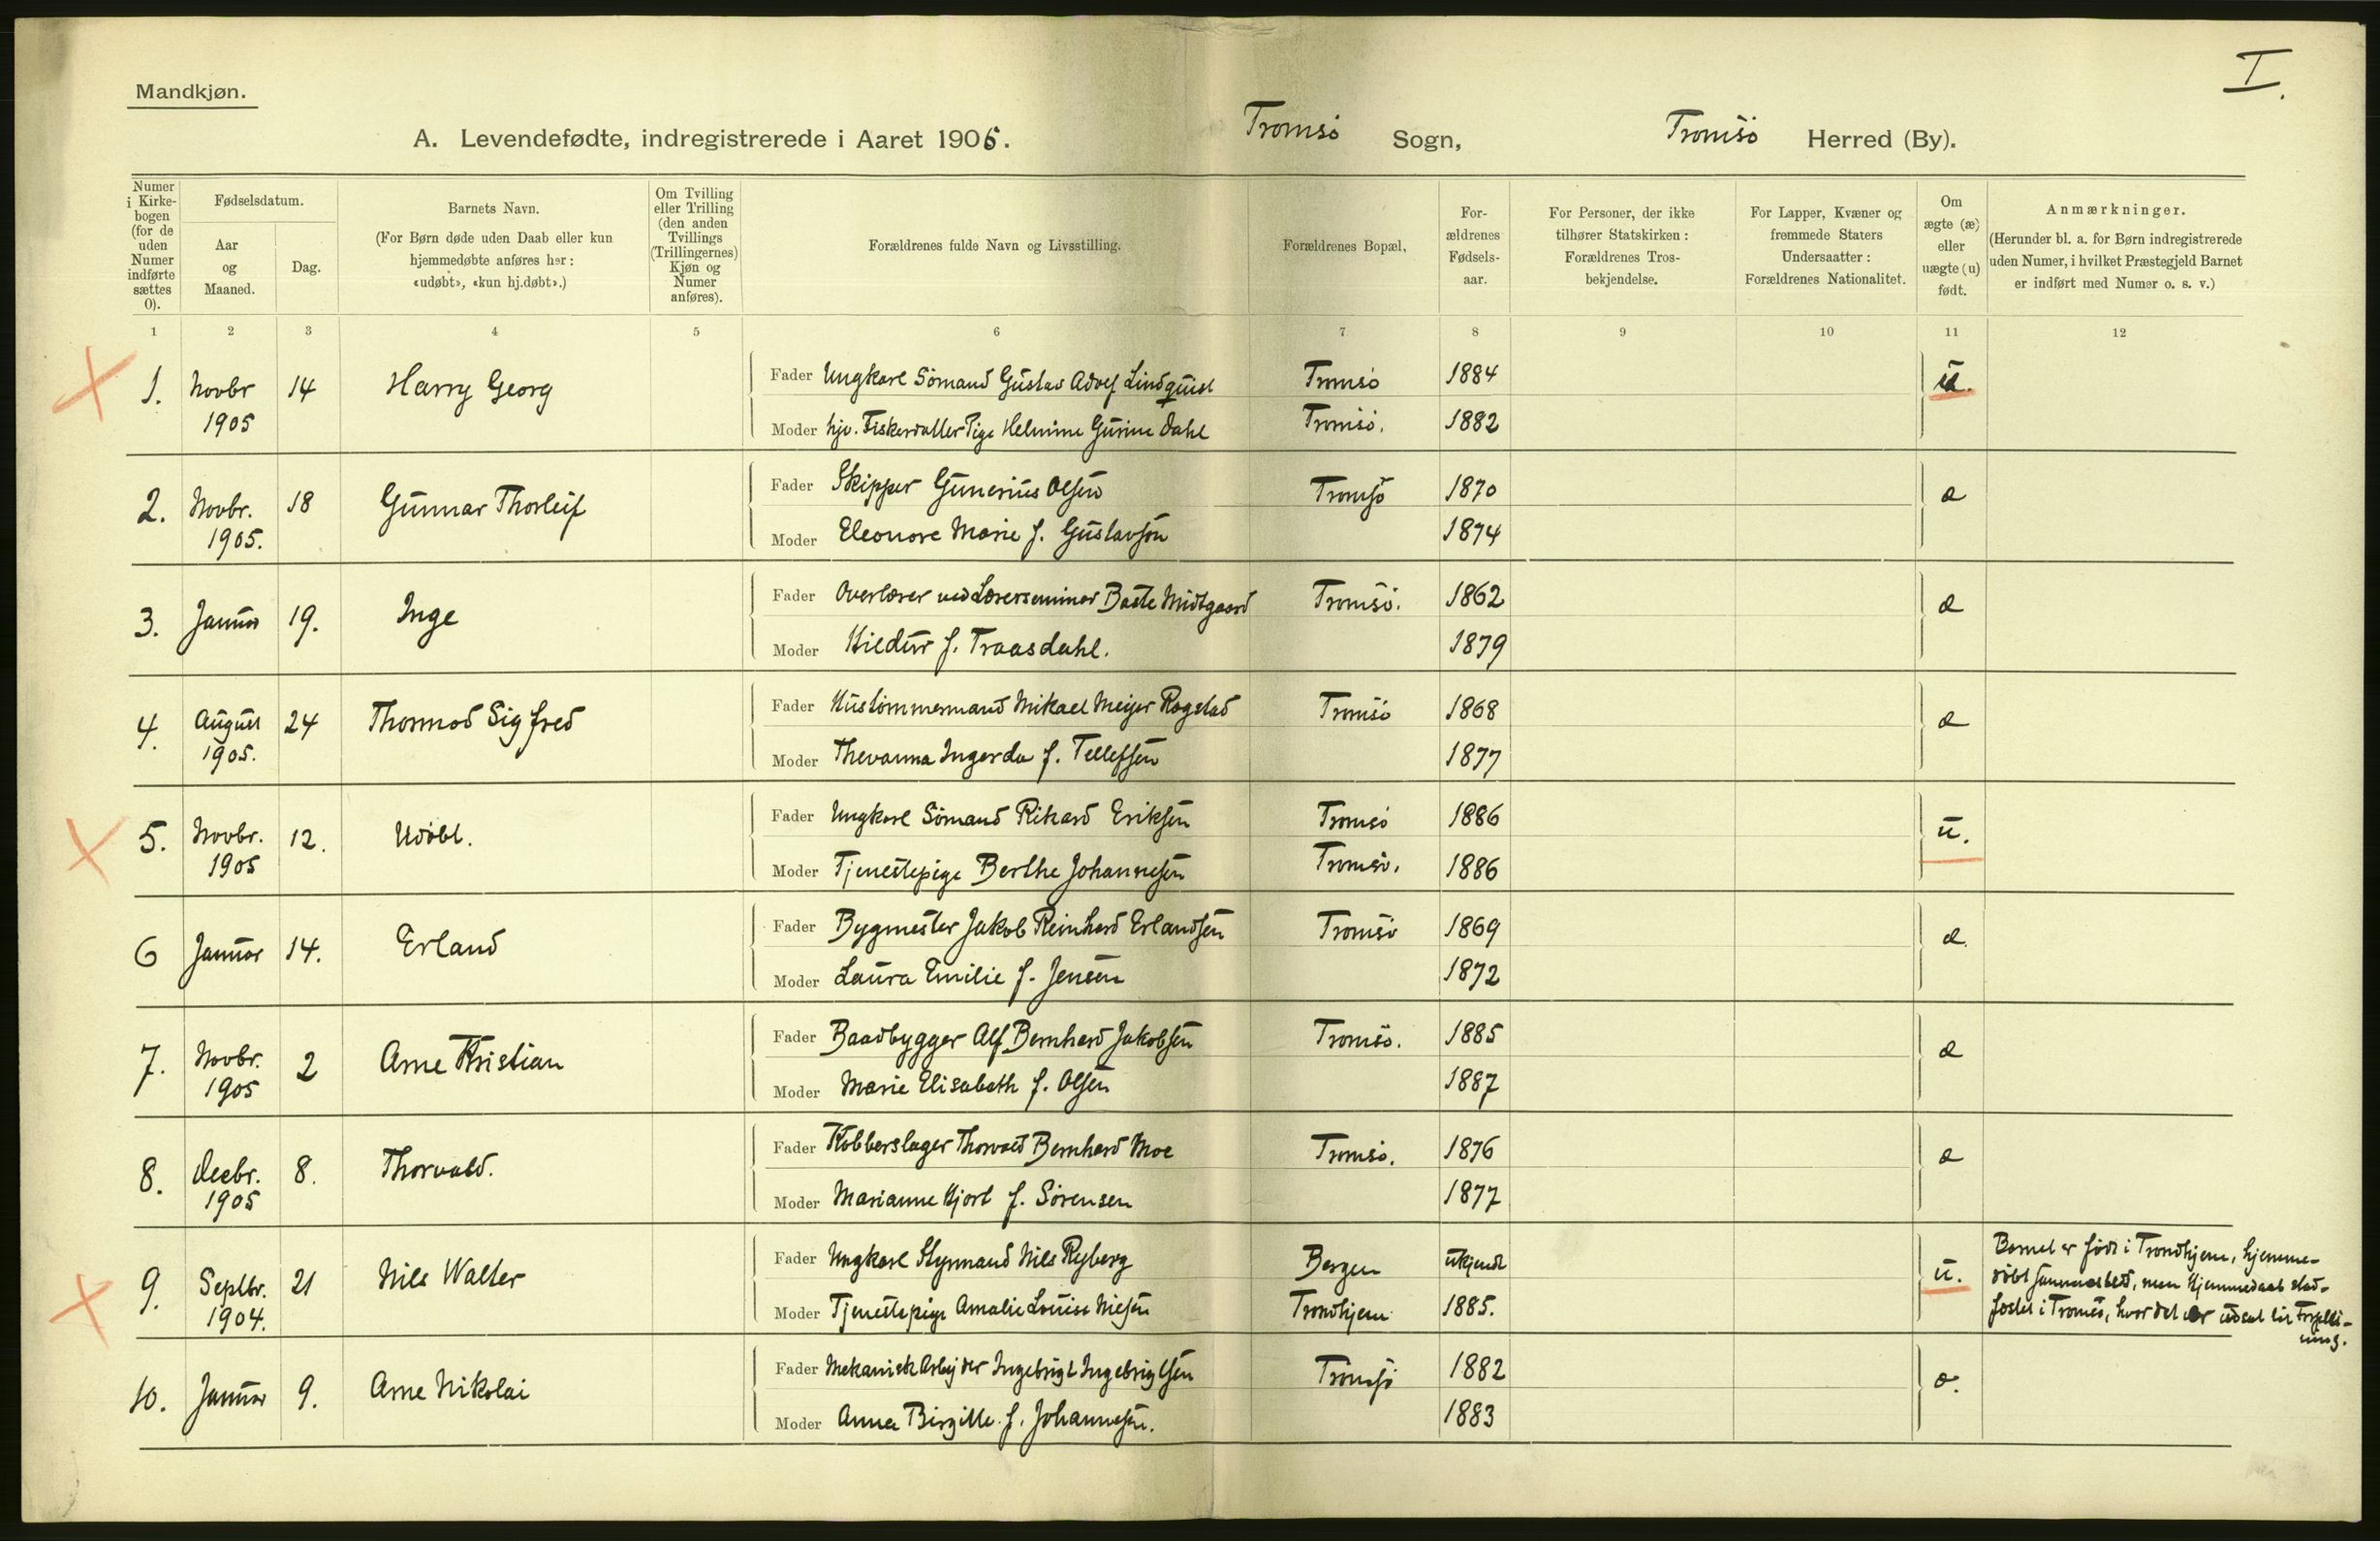 I.
Mandkjøn.
A. Levendefødte, indregistrerede i Aaret 1906. Tromsö Sogn, Tromsö Herred (By).
Numer i Kirkebogen (for de uden Numer indførte sættes 0).
Fødselsdatum.
Aar og Maaned.
Dag.
Barnets Navn.
(For Børn døde uden Daab eller kun hjemmedøbte anføres her: «udøbt», «kun hj.døbt».)
Om Tvilling eller Trilling (den anden Tvillings (Trillingernes) Kjøn og Numer anføres).
Forældrenes fulde Navn og Livsstilling.
Forældrenes Bopæl.
Forældrenes Fødselsaar.
For Personer, der ikke tilhører Statskirken: Forældrenes Trosbekjendelse.
For Lapper, Kvæner og fremmede Staters Undersaatter: Forældrenes Nationalitet.
Om ægte (æ) eller uægte (u) født.
Anmærkninger.
(Herunder bl. a. for Børn indregistrerede uden Numer, i hvilket Præstegjeld Barnet er indført med Numer o. s. v.)
1 2 3 4 5 6 7 8 9 10 11 12
1. Novbr 14 Harry Georg Fader Ungkarl Sömand Gustav Adolf Lindquist Tromsö 1884 u.
1905 Moder hjv. Fiskerdatter Pige Helmine Gurine Dahl Tromsö. 1882
2. Novbr. 18 Gunnar Thorleif Fader Skipper Gunerius Olsen Tromsö 1870 æ
1905. Moder Eleonore Marie f. Gustavsen 1874
3. Januar 19. Inge Fader Overlærer ved Lærerseminar Baste Midtgaard Tromsö. 1862 æ
Moder Hildur f. Traasdahl. 1879
4. August 24 Thormod Sigfred Fader Hustömmermand Mikael Meijer Rogstad Tromsö 1868 æ
1905. Moder Thevanna Ingerda f. Tellefsen 1877
5. Novbr. 12. Udöbt. Fader Ungkarl Sömand Rikard Eriksen Tromsö 1886 u.
1905 Moder Tjenestepige Berthe Johannesen Tromsö. 1886
6 Januar 14. Erland Fader Bygmester Jakob Reinhard Erlandsen Tromsö 1869 æ
Moder Laura Emilie f. Jensen 1872
7. Novbr. 2 Arne Kristian Fader Baadbygger Alf Bernhard Jakobsen Tromsö. 1885 æ
1905 Moder Marie Elisabeth f. Olsen 1887
8. Decbr. 8. Thorvald. Fader Kobberslager Thorvald Bernhard Moe Tromsö. 1876 æ
1905 Moder Marianne Hjort f. Sörensen 1877
9. Septbr. 21 Nils Walter Fader Ungkarl Styrmand Nils Ryberg Bergen ukjendt u.
1904. Moder Tjenestepige Amalie Louise Nielsen Trondhjem 1885.
Barnet er födt i Trondhjem, hjemme-
döbt sammesteds, men Hjemmedaab stad-
fæstet i Tromsö, hvor det er udsat til Forplei-
ning.
10. Januar 9. Arne Nikolai Fader Mekanisk Arbejder Ingebrigt Ingebrigtsen Tromsö 1882 æ.
Moder Anna Birgitte f. Johannesen. 1883